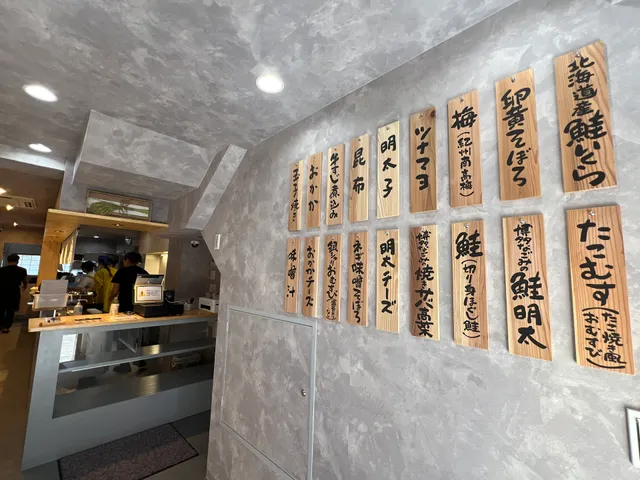 北海道産鮭いくら
卵黄そぼろ
梅(紀州南高梅)
ツナマヨ
明太子
昆布
牛すじ煮込み
おかか
玉子焼き
たこむす(たこ焼き風おむすび)
博多なごみの鮭明太
鮭(切り身ほぐし鮭)
焼きサバ高菜
明太チーズ
ネギ味噌そぼろ
おかかチーズ
味噌汁